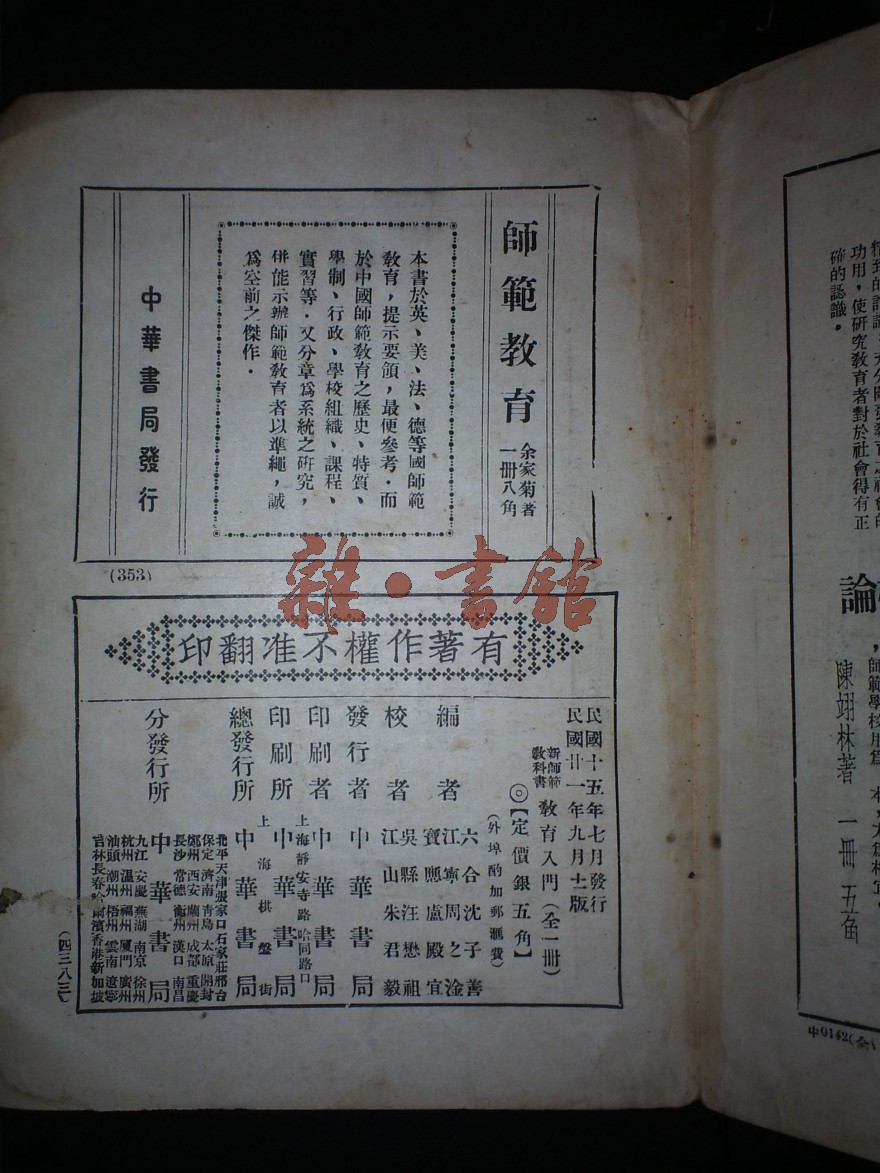 功用，使研究教育者對於社會得有正
確的認識。
論
陳翊林著 一冊 五角
師範教育
余家菊著
一冊八角
本書於英、美、法、德等國師範
教育，提示要領，最便參考．而
於中國師範教育之歷史、特質、
學制、行政、學校組織、課程、
實習等．又分章爲系統之研究，
併能示辦師範教育者以準繩，誠
爲空前之傑作．
中華書局發行
(353)
雜·書館
有著作權不准翻印
民國十五年七月發行
民國廿一年九月十二版
新師範
教科書
教育入門(全一冊)
◎【定價銀五角】
(外埠酌加郵滙費)
編者
六合沈子善
江寧周之淦
寶應盧殿宜
校者
吳縣汪懋祖
江山朱君毅
發行者 中華書局
印刷者 中華書局
上海靜安寺路哈同路口
印刷所 中華書局
上海棋盤街
總發行所 中華書局
北平天津張家口石家莊邢台
保定 濟南 青島 太原 開封
鄭州 西安 蘭州 成都 重慶
長沙 常德 衡州 漢口 南昌
分發行所 中華書局
九江 安慶 蕪湖 南京 徐州
杭州 溫州 福州 厦門 廣州
汕頭 潮州 梧州 雲南 遼寧
吉林長春哈爾濱香港新加坡
(四三八三)
中0142(全)